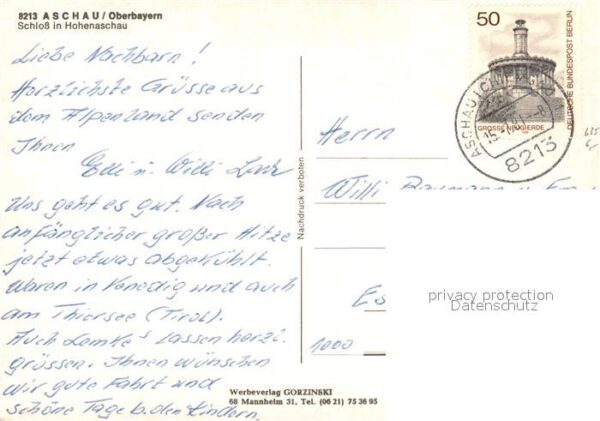 8213 ASCHAU / Oberbayern
Schloß in Hohenaschau
Liebe Nachbarn!
Herzlichste Grüsse aus
dem Alpenland senden
Ihnen
Edi u. Willi
Uns geht es gut. Nach
anfänglicher großer Hitze
jetzt etwas abgekühlt.
Waren in Venedig und auch
am Thiersee (Tirol).
Auch Lemke's lassen herzl.
grüssen. Ihnen wünschen
wir gute Fahrt und
schöne Tage b. den Kindern.
Nachdruck verboten
Werbeverlag GORZINSKI
68 Mannheim 31, Tel. (06 21) 75 36 95
50
DEUTSCHE BUNDESPOST BERLIN
GROSSE NEUGIERDE
ASCHAU I. CHIEMGAU
8213
Herrn
Willi
Es
1000
privacy protection
Datenschutz